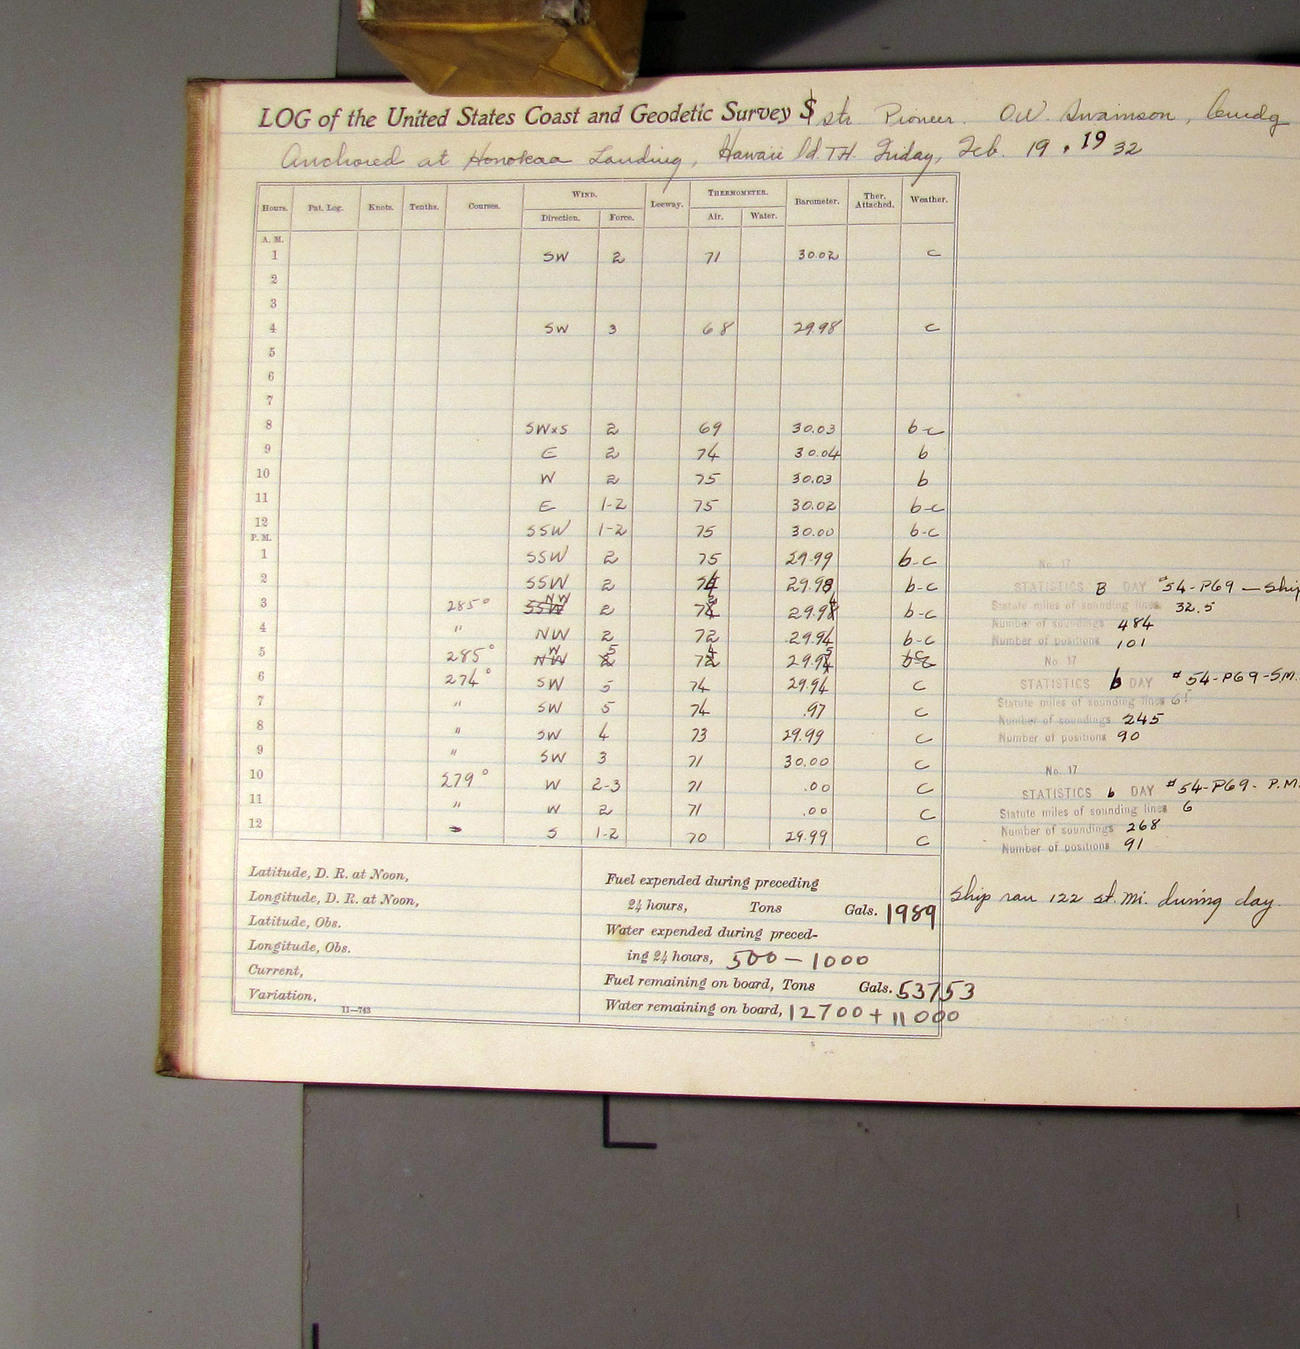 LOG of the United States Coast and Geodetic Survey $ str Pioneer. O.W. Swainson, Comdg
Anchored at Honokaa Landing, Hawaii Id. T.H. Friday, Feb. 19, 1932
Hours. Pat. Log. Knots. Tenths. Courses. WIND. Leeway. THERMOMETER. Barometer. Ther. Attached. Weather.
Direction. Force. Air. Water.
A. M.
1 SW 2 71 30.02 c
2
3
4 SW 3 68 29.98 c
5
6
7
8 SWxS 2 69 30.03 b-c
9 E 2 74 30.04 b
10 W 2 75 30.03 b
11 E 1-2 75 30.02 b-c
12 SSW 1-2 75 30.00 b-c
P. M.
1 SSW 2 75 29.99 b-c
2 SSW 2 29.98 b-c
3 285° SSW NW 2 29.9 b-c
4 " NW 2 72 29.94 b-c
5 285° NW W 5 7 29.9 c
6 274° SW 5 74 29.94 c
7 " SW 5 74 .97 c
8 " SW 4 73 29.99 c
9 " SW 3 71 30.00 c
10 279° W 2-3 71 .00 c
11 " W 2 71 .00 c
12 S 1-2 70 29.99 c
No. 17
STATISTICS B DAY #54-P69 — Ship
Statute miles of sounding lines 32.5
Number of soundings 484
Number of positions 101
No. 17
STATISTICS b DAY #54-P69-S.M.
Statute miles of sounding lines
Number of soundings 245
Number of positions 90
No. 17
STATISTICS b DAY #54-P69- P.M.
Statute miles of sounding lines 6
Number of soundings 268
Number of positions 91
Ship ran 122 st. mi. during day.
Latitude, D. R. at Noon,
Longitude, D. R. at Noon,
Latitude, Obs.
Longitude, Obs.
Current,
Variation,
11—743
Fuel expended during preceding
24 hours, Tons Gals. 1989
Water expended during preced-
ing 24 hours, 500 — 1000
Fuel remaining on board, Tons Gals. 53753
Water remaining on board, 12700 + 11000